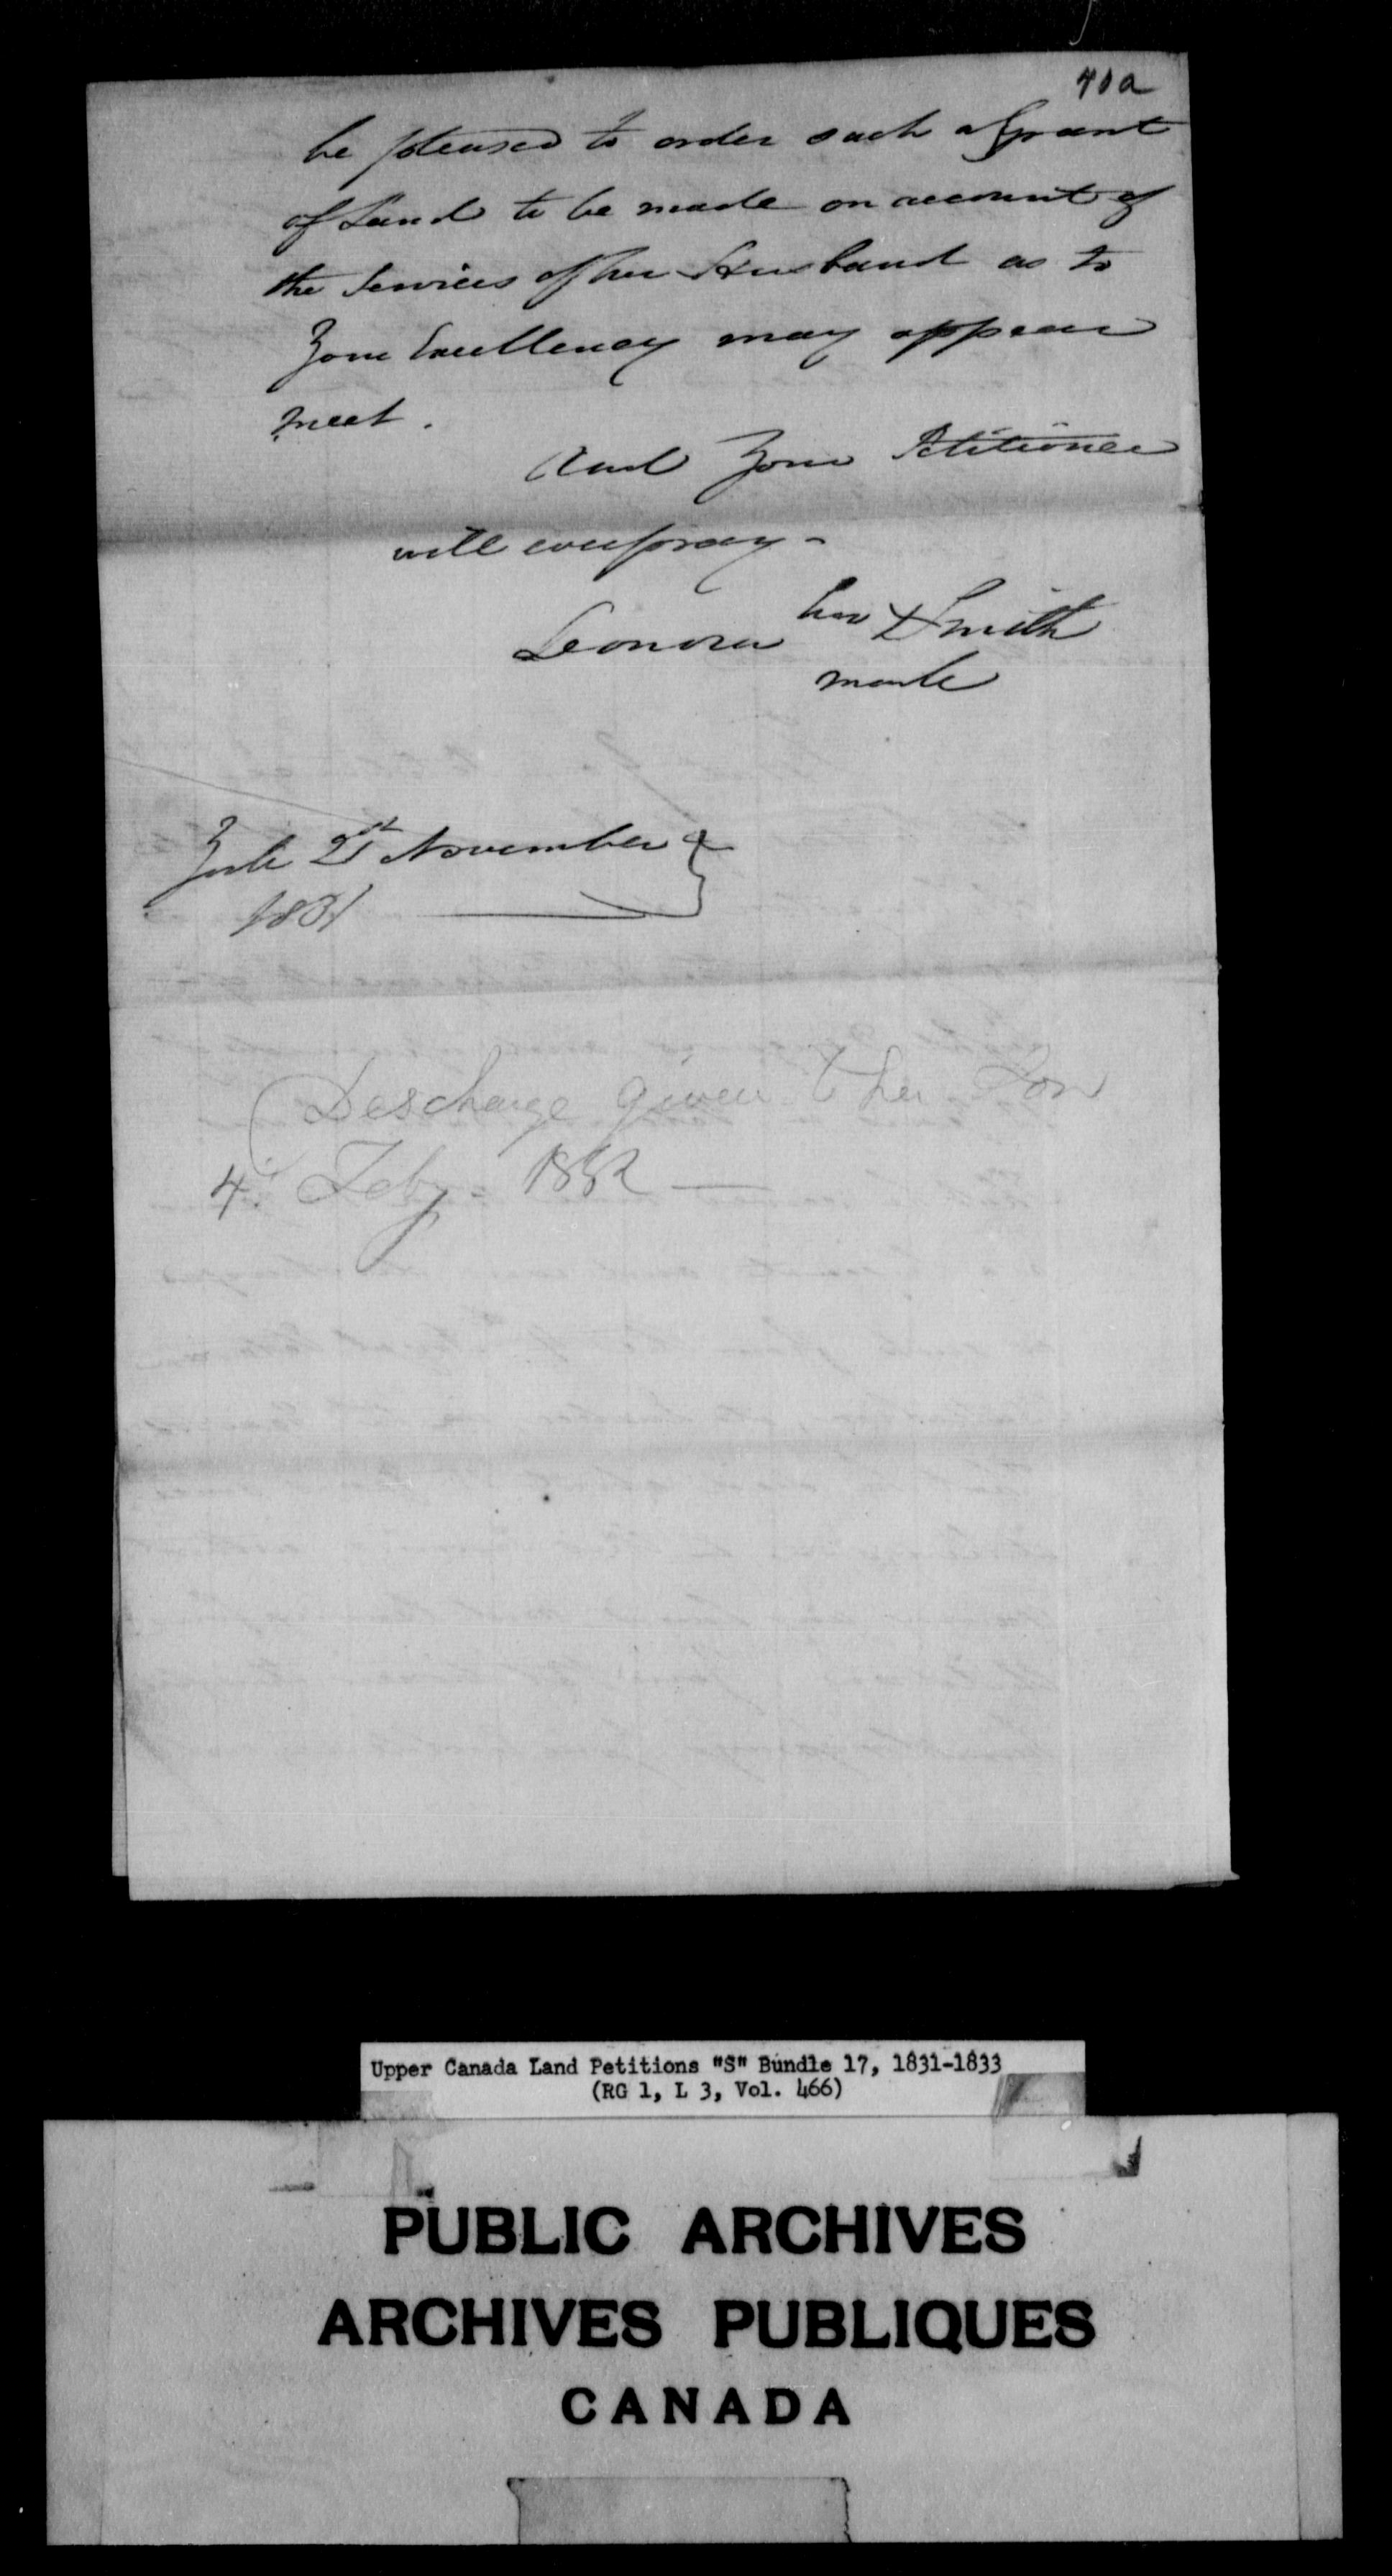 40a
be pleased to order such a Grant
of Land to be made on account of
the Services of her Husband as to
Your Excellency may appear
meet.
And Your Petitioner
will ever pray -
Leonora her X Smith
mark
York 21st November
1831
Discharge given to her Son
4. Feby. 1832 —
Upper Canada Land Petitions "S" Bundle 17, 1831-1833
(RG 1, L 3, Vol. 466)
PUBLIC ARCHIVES
ARCHIVES PUBLIQUES
CANADA